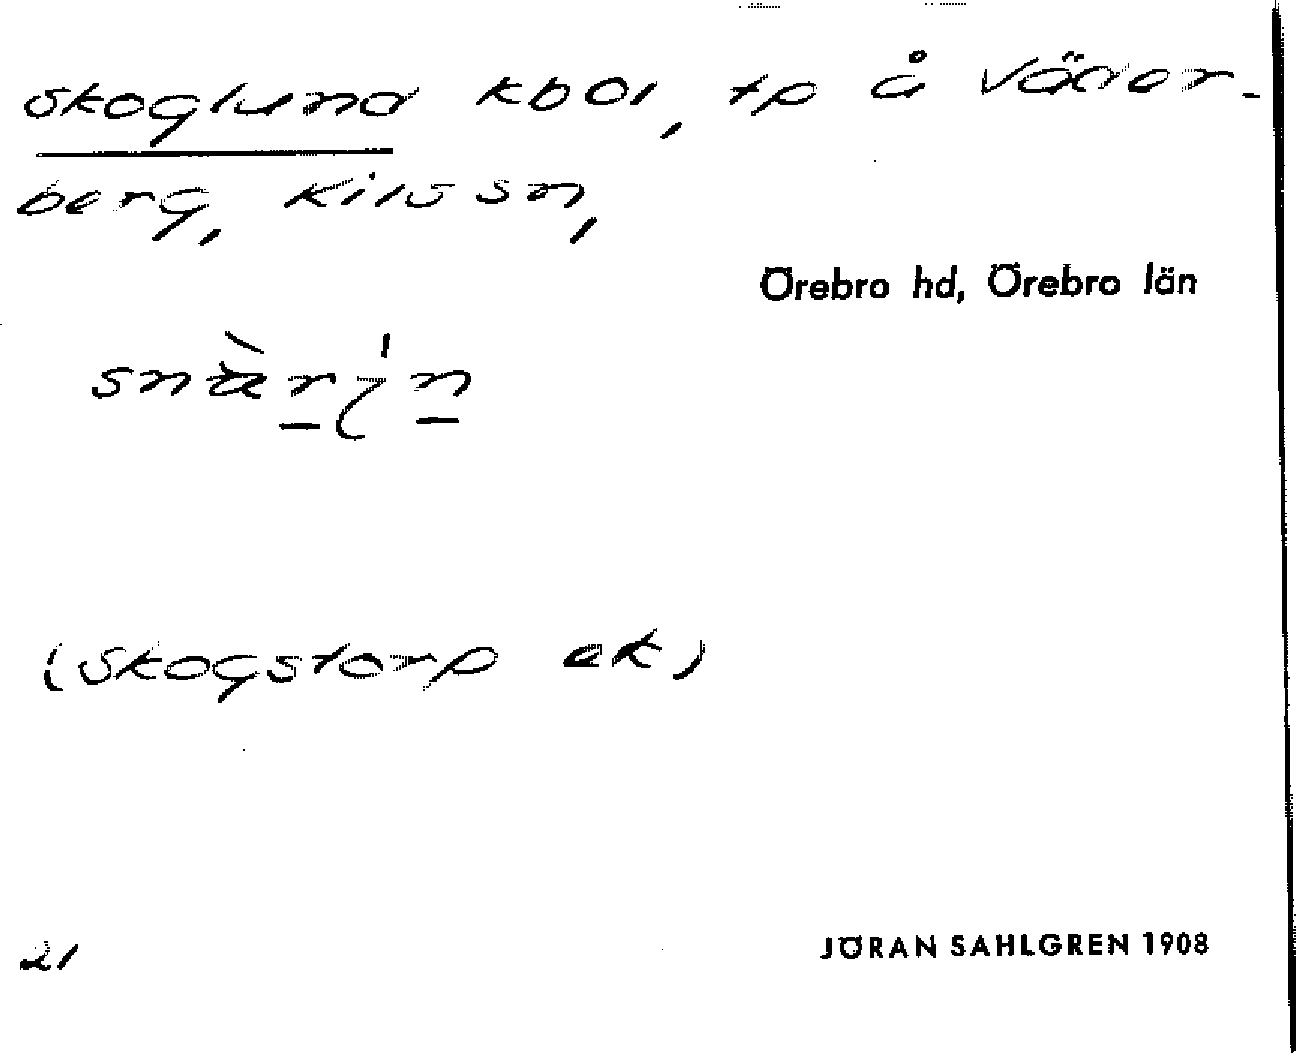 Skoglund kbol, tp å Väder-
berg, Kils sn,
Örebro hd, Örebro län
(Skogstorp ek)
21
JÖRAN SAHLGREN 1908